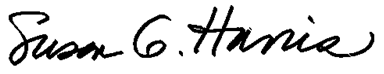 Susan G. Harris